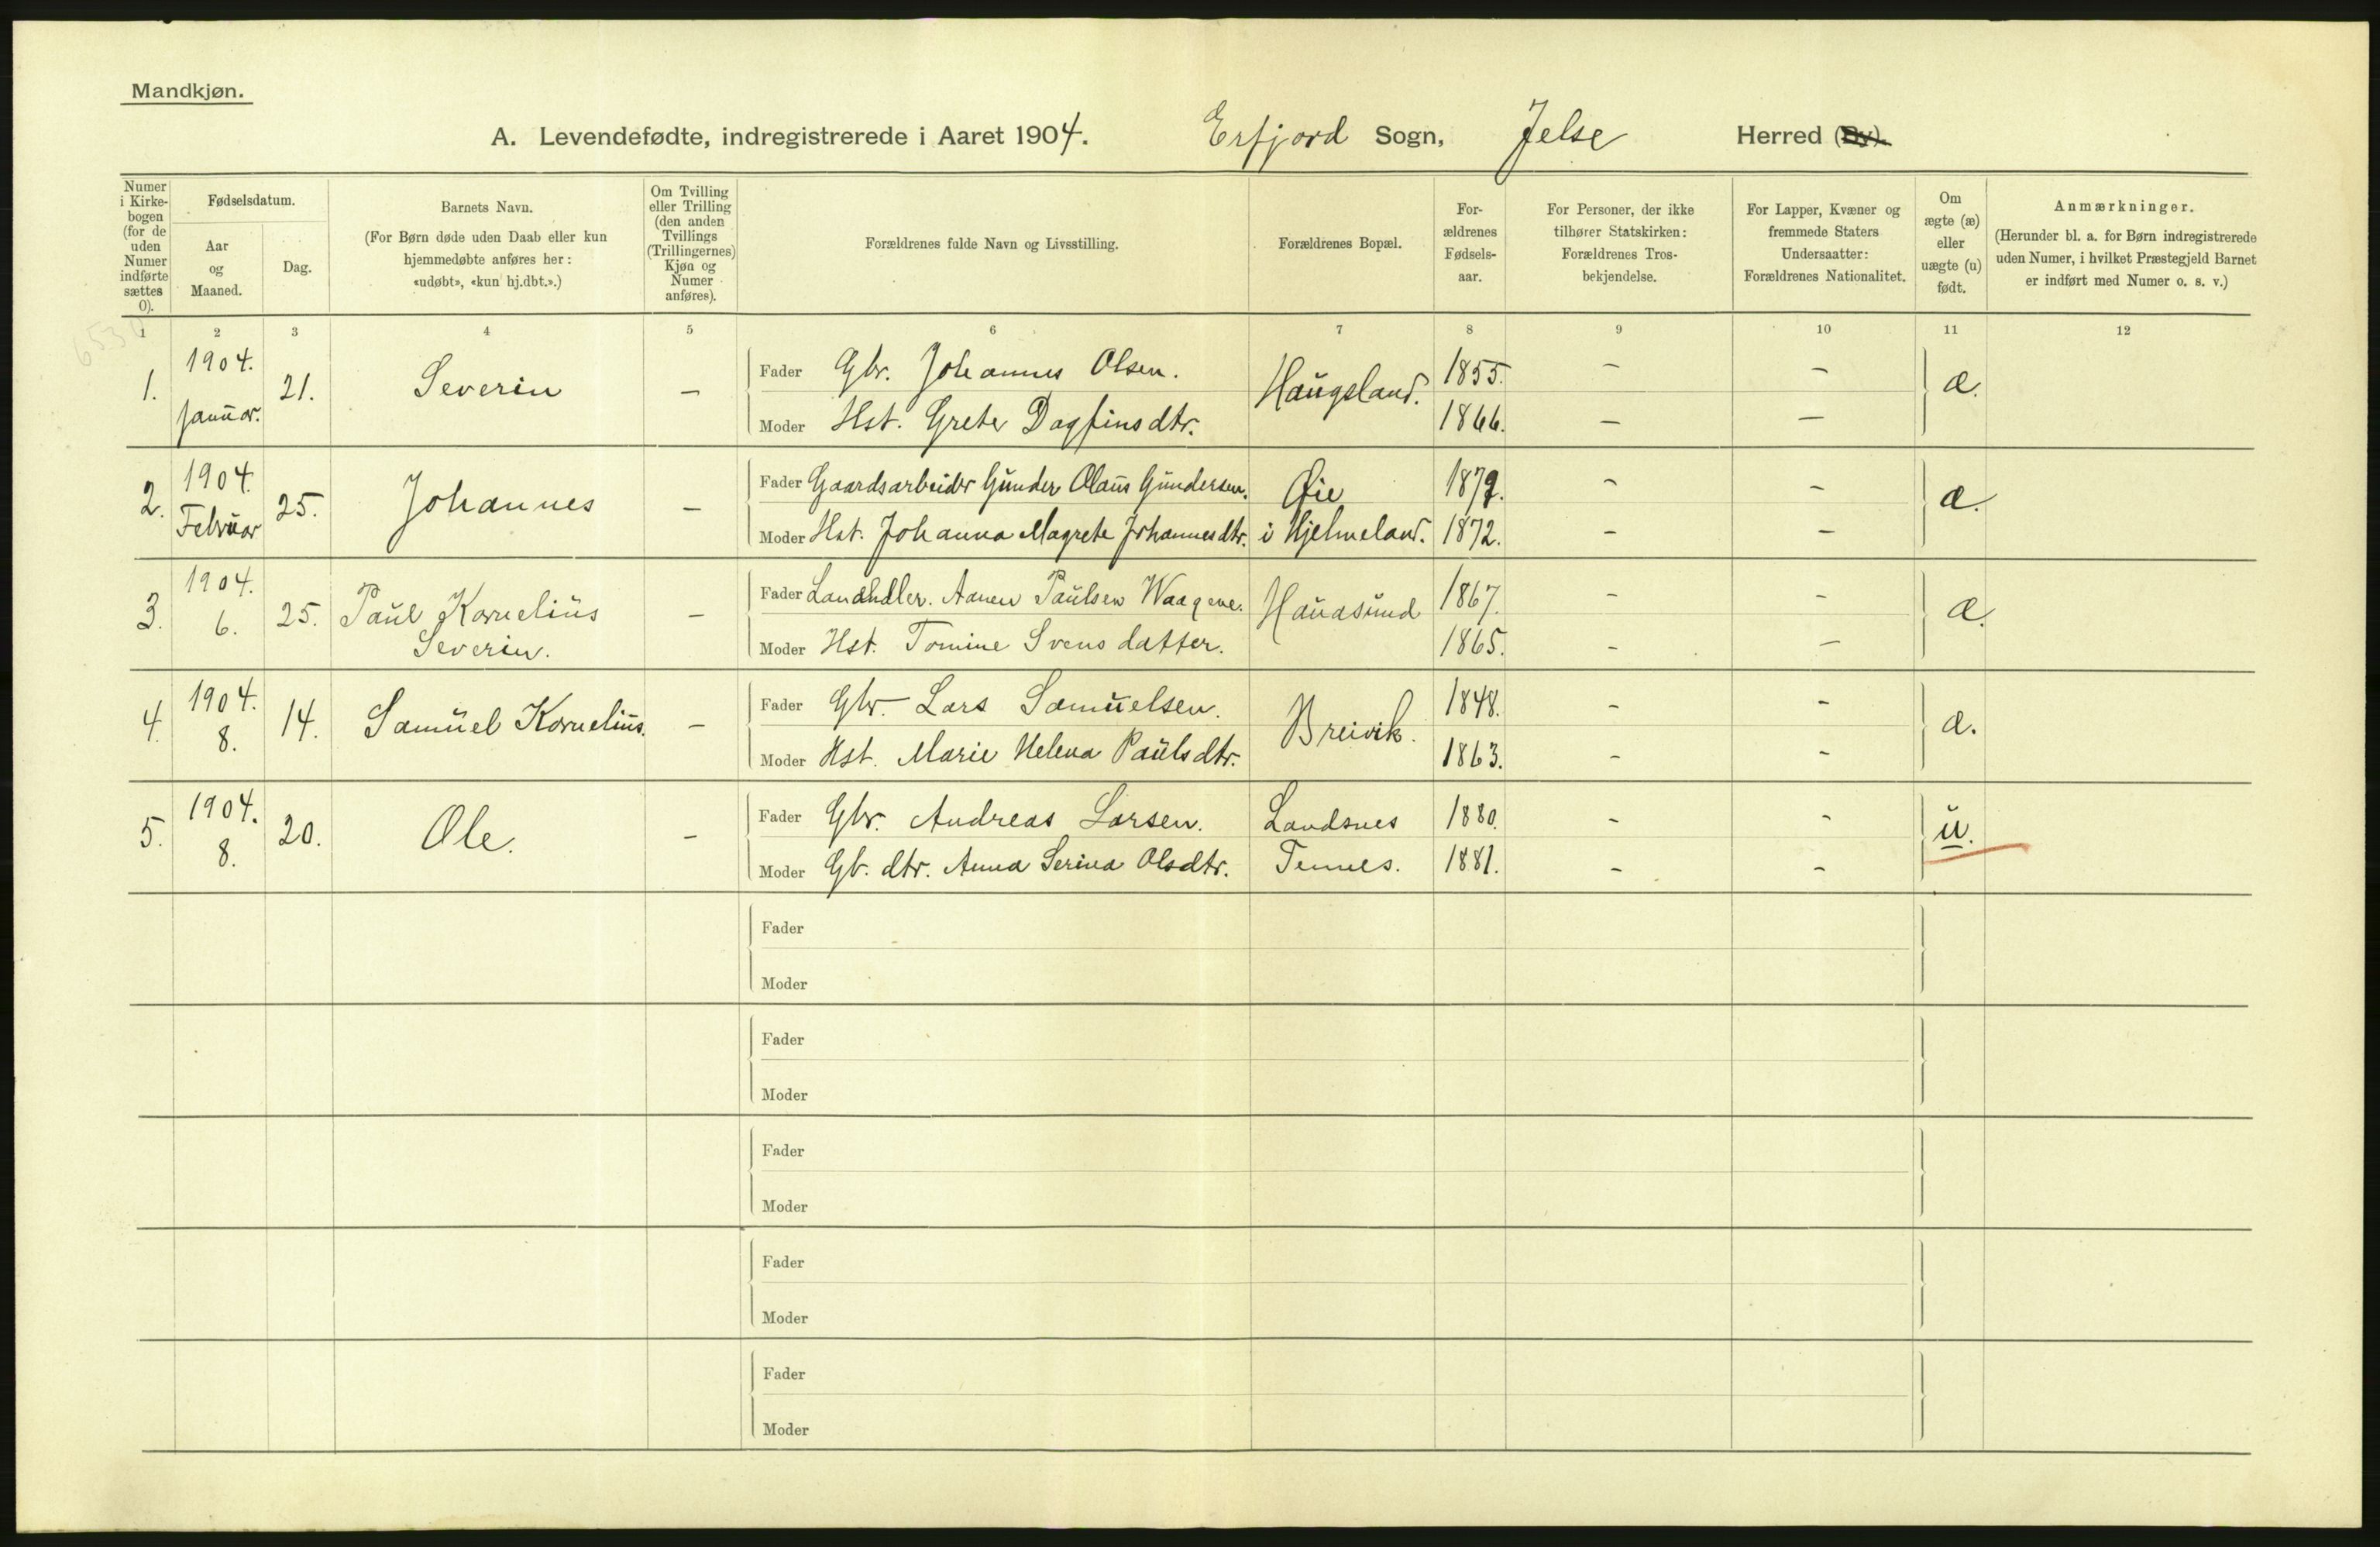 Mandkjøn.
A. Levendefødte, indregistrerede i Aaret 1904. Erfjord Sogn, Jelse Herred (By).
Numer i Kirkebogen (for de uden Numer indførte sættes 0).
Fødselsdatum.
Aar og Maaned.
Dag.
Barnets Navn.
(For Børn døde uden Daab eller kun hjemmedøbte anføres her: «udøbt», «kun hj.dbt.».)
Om Tvilling eller Trilling (den anden Tvillings (Trillingernes) Kjøn og Numer anføres).
Forældrenes fulde Navn og Livsstilling.
Forældrenes Bopæl.
Forældrenes Fødselsaar.
For Personer, der ikke tilhører Statskirken: Forældrenes Trosbekjendelse.
For Lapper, Kvæner og fremmede Staters Undersaatter: Forældrenes Nationalitet.
Om ægte (æ) eller uægte (u) født.
Anmærkninger.
(Herunder bl. a. for Børn indregistrerede uden Numer, i hvilket Præstegjeld Barnet er indført med Numer o. s. v.)
1 2 3 4 5 6 7 8 9 10 11 12
1. 1904. Januar. 21. Severin – Fader Gbr. Johannes Olsen. Haugsland. 1855. – – æ.
Moder Hst. Grete Dagfinsdtr. 1866. – –
2. 1904. Februar 25. Johannes – Fader Gaardsarbeider Gunder Olaus Gundersen. Øie 1879. – – æ.
Moder Hst. Johanna Magrete Johannesdtr. i Hjelmeland. 1872. – –
3. 1904. 6. 25. Paul Kornelius Severin. – Fader Landhdler. Aanen Paulsen Waagene. 1867. – – æ.
Moder Hst. Tomine Svensdatter. 1865. – –
4. 1904. 8. 14. Samuel Kornelius. – Fader Gbr. Lars Samuelsen. Breivik. 1848. – – æ.
Moder Hst. Marie Helena Paulsdtr. 1863. – –
5. 1904. 8. 20. Ole. – Fader Gbr. Andreas Larsen. Landsnes 1880. – – u.
Moder Gb. dtr. Anna Serina Olsdtr. Tennes. 1881. – –
Fader
Moder
Fader
Moder
Fader
Moder
Fader
Moder
Fader
Moder